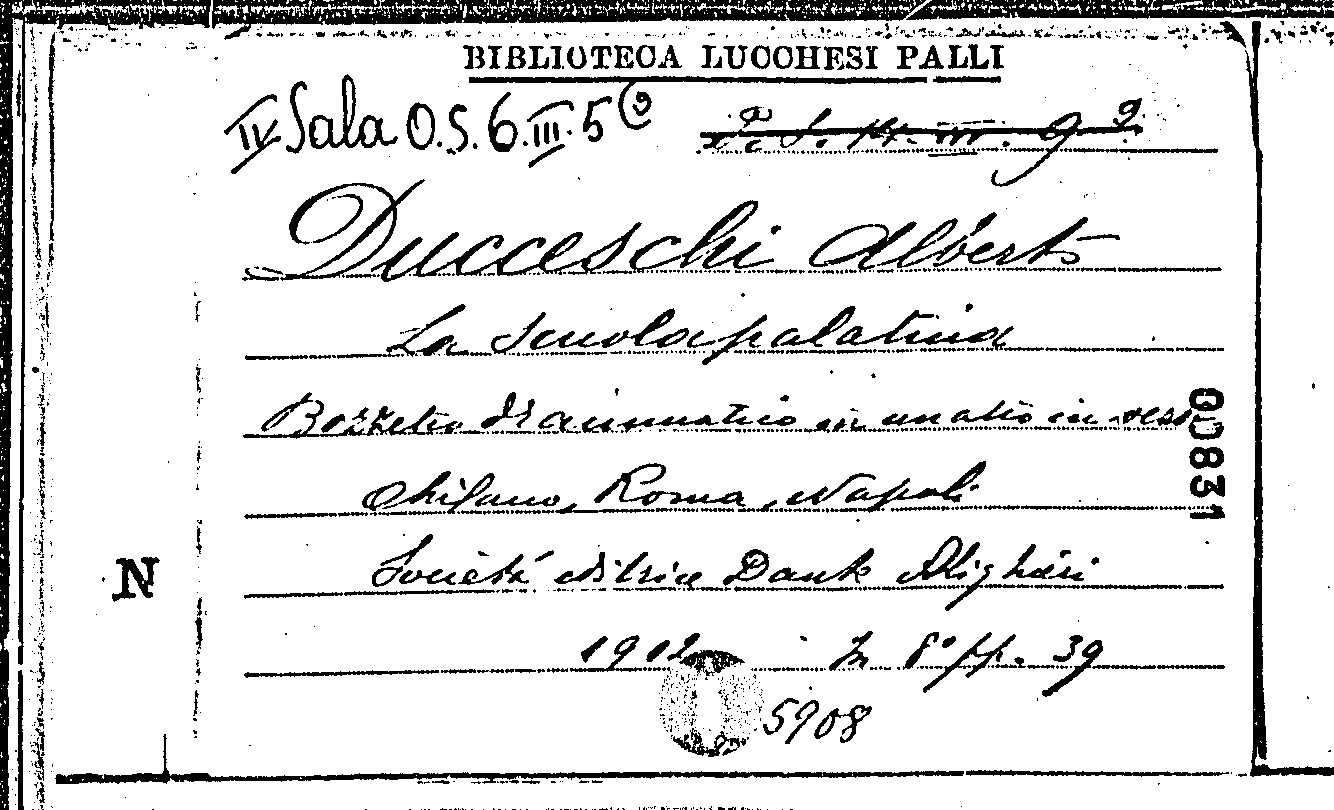 BIBLIOTECA LUCCHESI PALLI
IV Sala O.S. 6. III. 5 (9
Ducceschi Alberto
La Scuola palatina
Bozzetto drammatico in un atto in versi
Milano, Roma, Napoli
Società editrice Dante Alighieri
1902 In 8° pp. 39
5908
00831
N